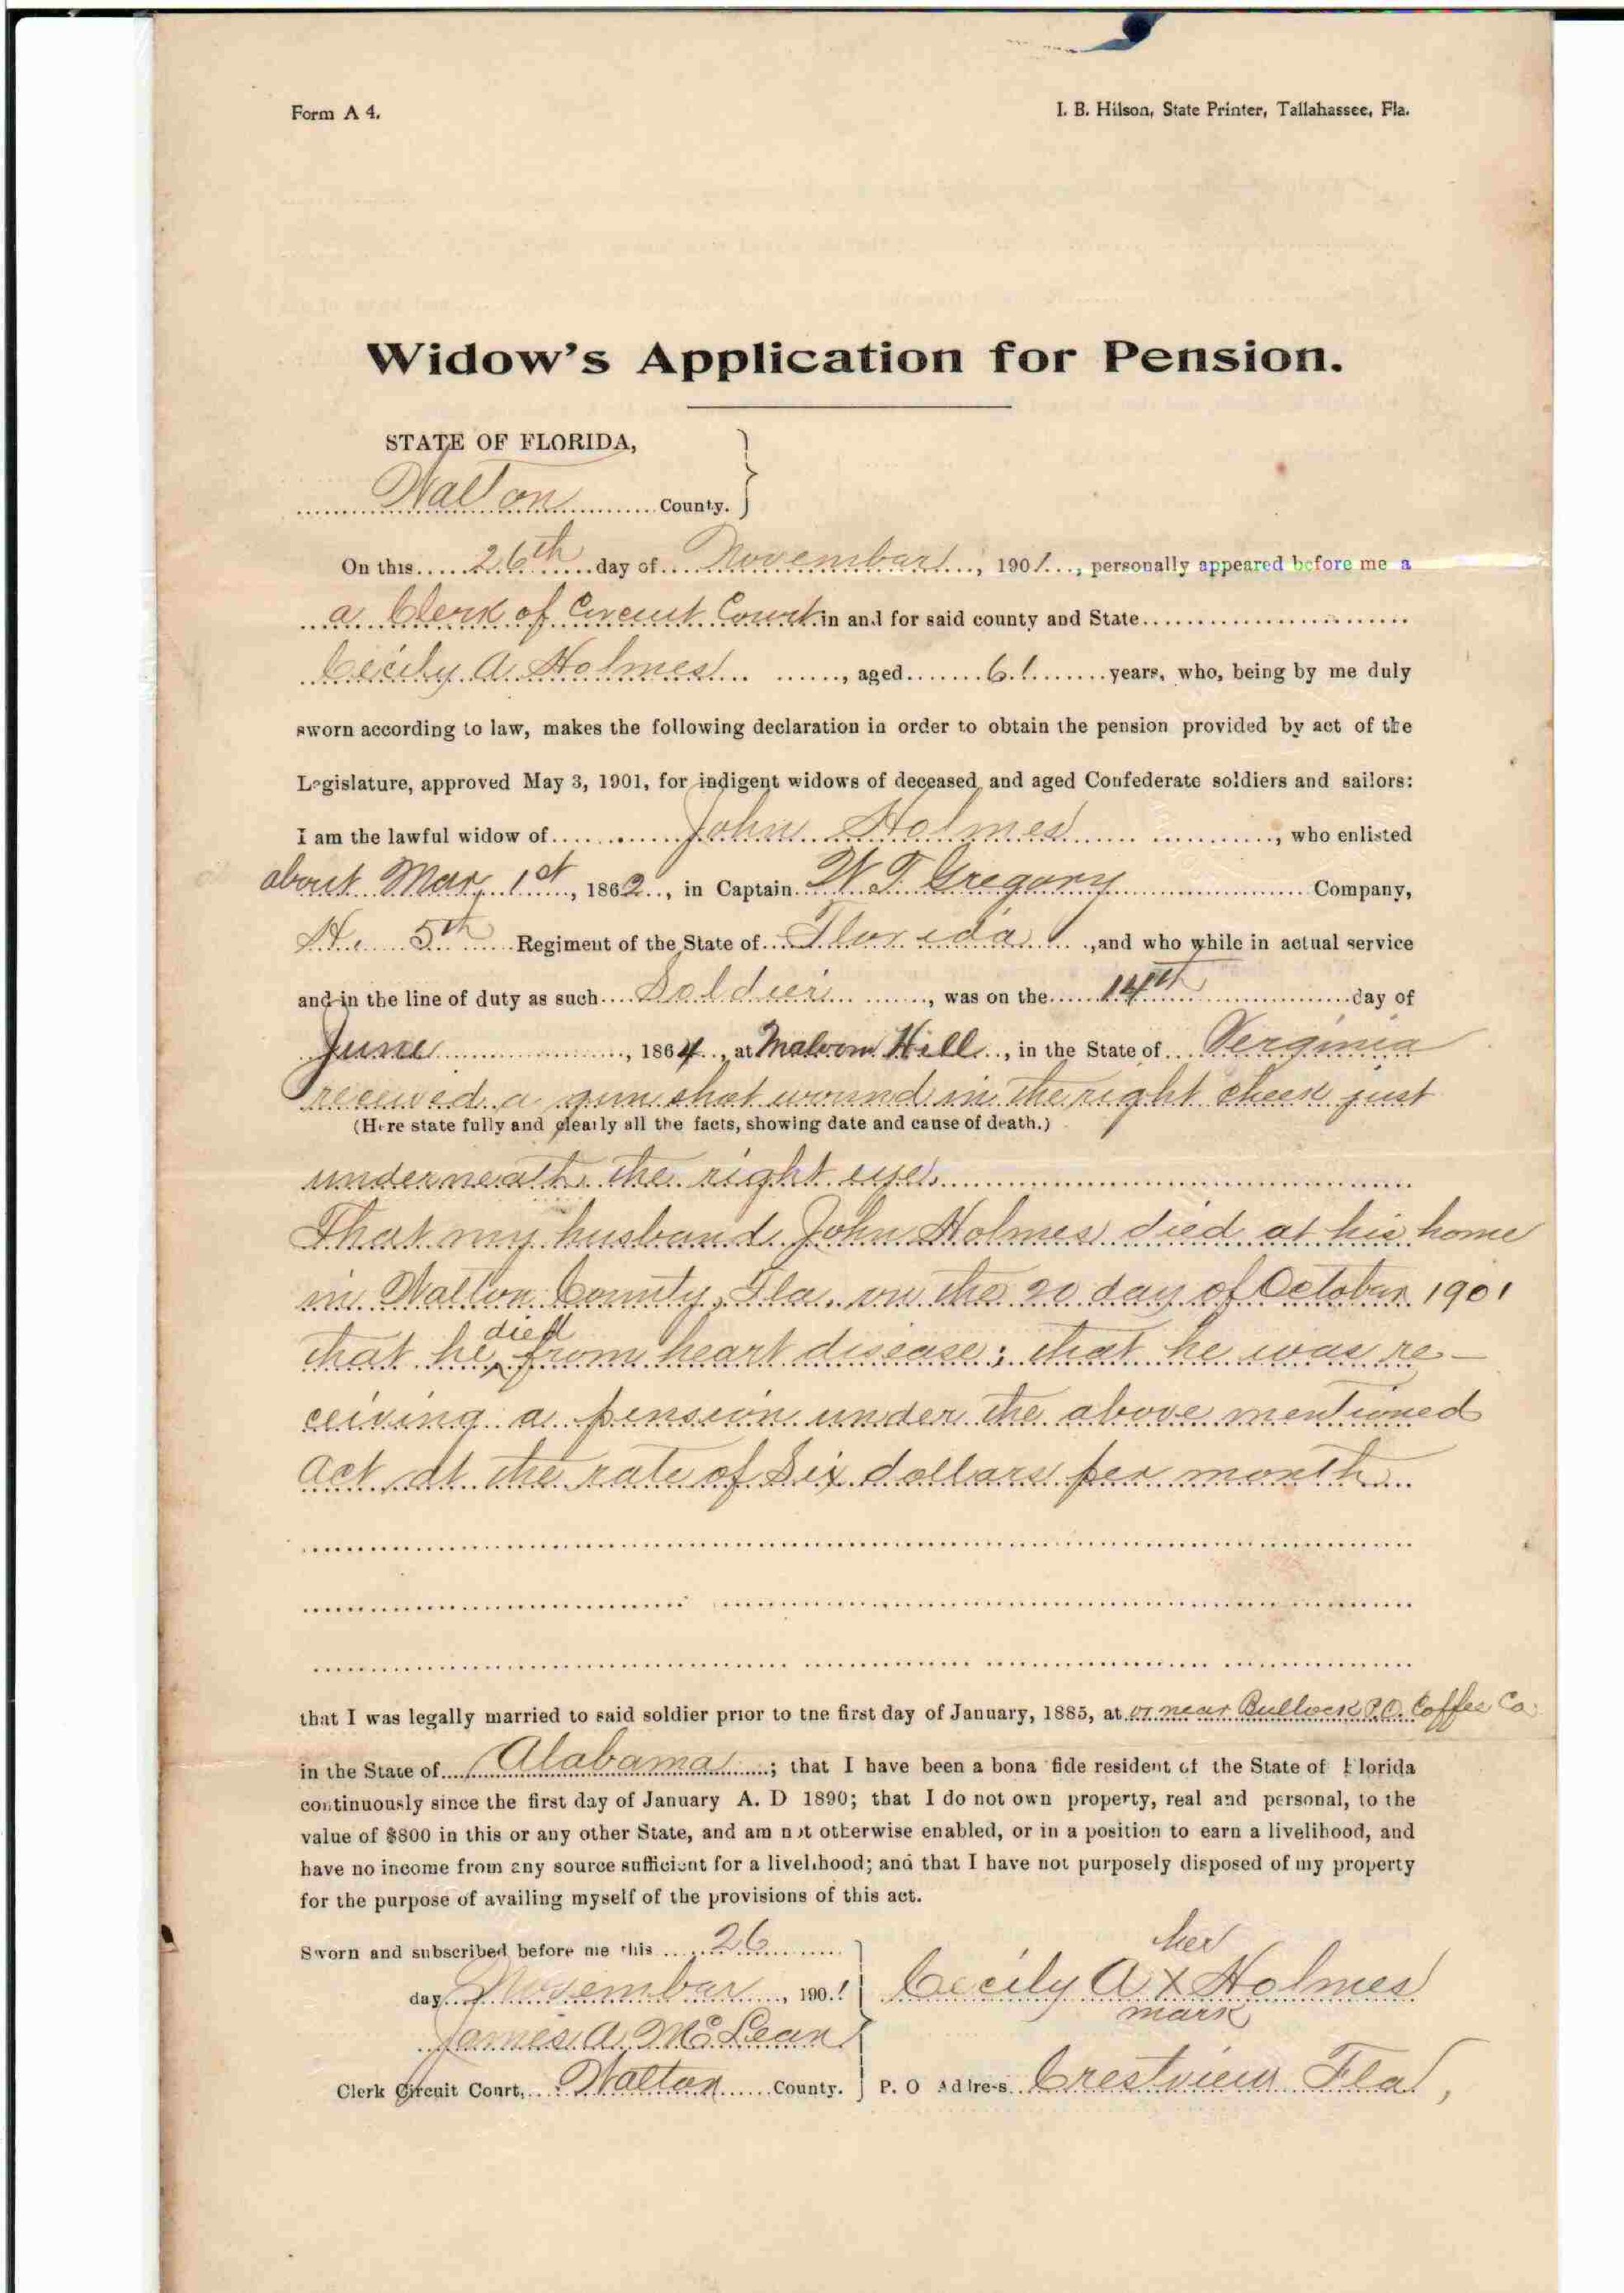 Form A 4.
I. B. Hilson, State Printer, Tallahassee, Fla.
Widow's Application for Pension.
STATE OF FLORIDA,
Walton County.
On this 26th day of November, 1901, personally appeared before me a
a Clerk of Circuit Court in and for said county and State
Cecily A Holmes, aged 61 years, who, being by me duly
sworn according to law, makes the following declaration in order to obtain the pension provided by act of the
Legislature, approved May 3, 1901, for indigent widows of deceased and aged Confederate soldiers and sailors:
I am the lawful widow of John Holmes, who enlisted
about Mar 1st, 1862, in Captain W. T. Gregory Company,
H. 5th Regiment of the State of Florida, and who while in actual service
and in the line of duty as such Soldier, was on the 14th day of
June, 1864, at Malvern Hill, in the State of Verginia
received a gun shot wound in the right cheek just
(Here state fully and clearly all the facts, showing date and cause of death.)
underneath the right eye.
That my husband John Holmes died at his home
in Walton County, Fla. on the 20 day of October 1901
that he died from heart disease; that he was re-
ceiving a pension under the above mentioned
Act at the rate of Six dollars per month
that I was legally married to said soldier prior to the first day of January, 1885, at or near Bullock P.O. Coffee Co.
in the State of Alabama; that I have been a bona fide resident of the State of Florida
continuously since the first day of January A. D 1890; that I do not own property, real and personal, to the
value of $800 in this or any other State, and am not otherwise enabled, or in a position to earn a livelihood, and
have no income from any source sufficient for a livelihood; and that I have not purposely disposed of my property
for the purpose of availing myself of the provisions of this act.
Sworn and subscribed before me this 26
day November, 1901
James A. McLean
Clerk Circuit Court, Walton County.
her
Cecily A x Holmes
mark
P. O Address Crestview Fla,